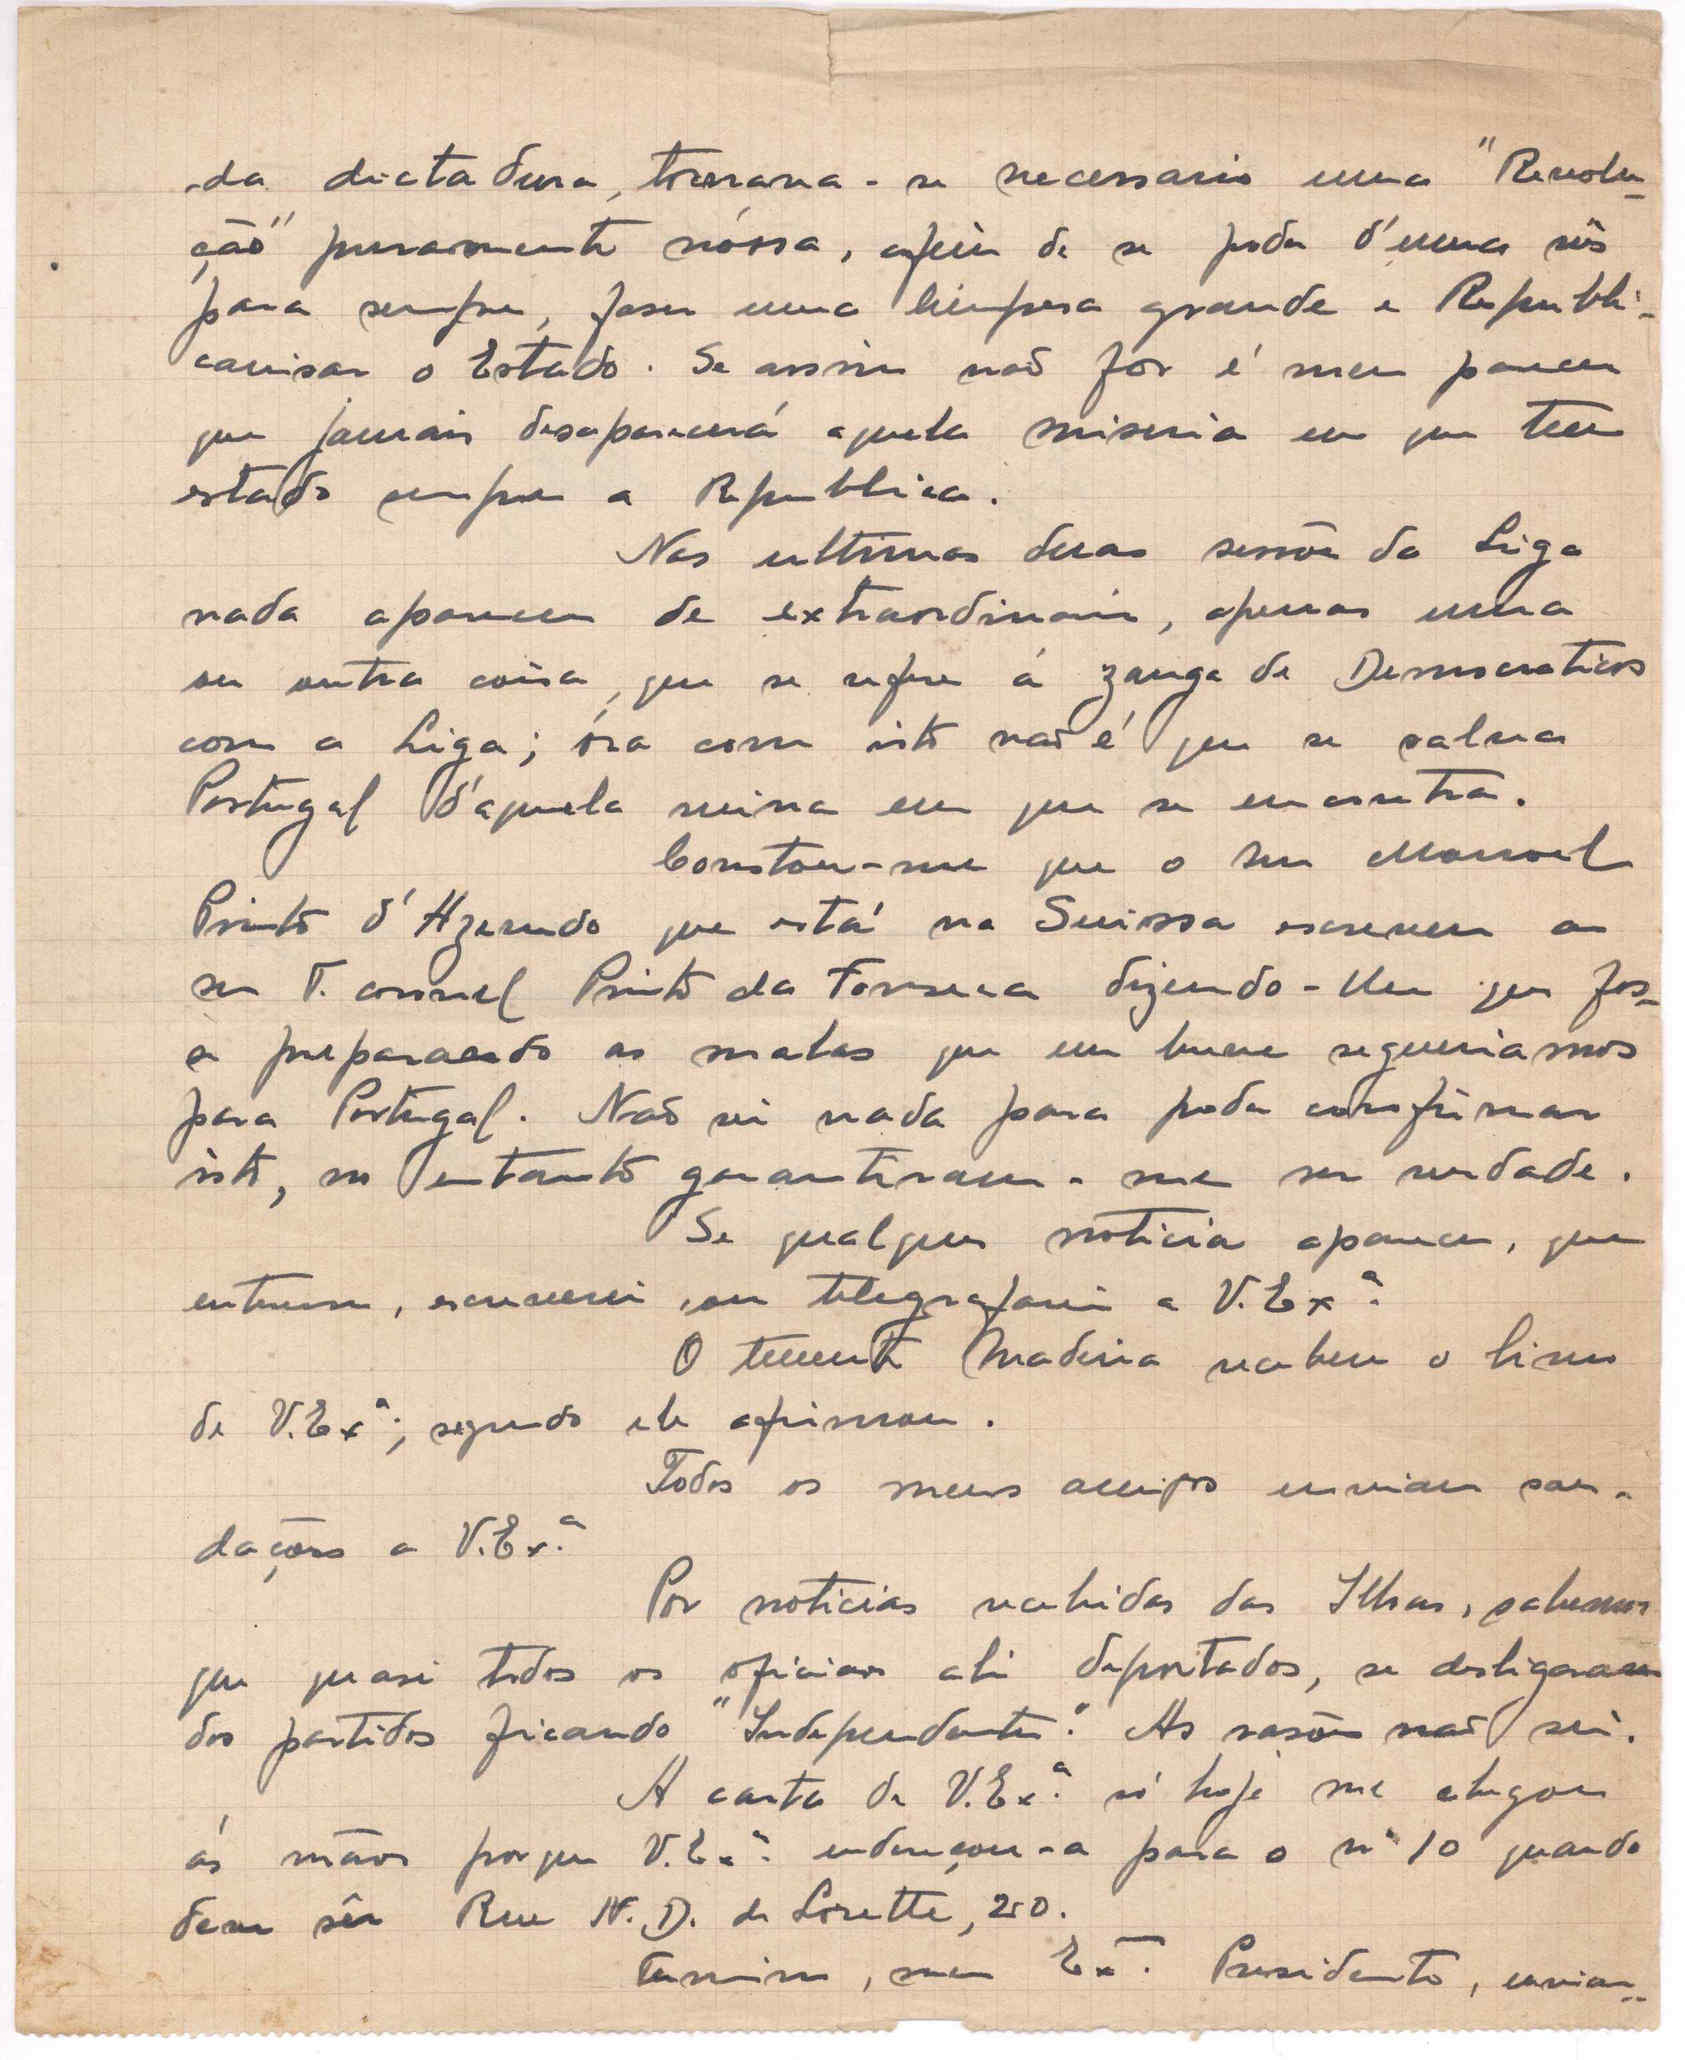 -da dictadura, tornava-se necessario uma "Revolu-
ção" puramente nóssa, afim de se poder d'uma vês
para sempre, faser uma limpesa grande e Republi-
canisar o Estado. Se assim não for é meu parecer
que jamais desaparecerá aquela miseria em que tem
estado sempre a Republica.
Nas ultimas duas sessões da Liga
nada apareceu de extraordinario, apenas uma
ou outra coisa, que se refere á zanga de Democraticos
com a Liga; óra com isto não é que se salva
Portugal d'aquela ruina em que se encontra.
Constou-me que o Snr Manoel
Pinto d'Azevedo que está na Suissa escreveu ao
snr T. coronel Pinto da Fonseca dizendo-lhe que fos-
se preparando as malas que em breve seguiriamos
para Portugal. Não vi nada para poder comfirmar
isto, no entanto garantiram-me ser verdade.
Se qualquer noticia aparecer, que
interesse, escreverei ou telegrafarei a V. Exª.
O tenente Madeira recebeu o livro
de V. Exª; segundo ele afirmou.
Todos os meus amigos enviam sau-
dações a V. Exª.
Por noticias recebidas das Ilhas, sabemos
que quasi todos os oficiaes ali deportados, se desligaram
dos partidos ficando "Independentes". As rasões não sei.
A carta de V. Exª. só hoje me chegou
ás mãos porque V. Exª. endereçou-a para o nº 10 quando
deve sêr Rue N. D. de Lorette, 250.
Termino, meu Ex.mo Presidente, envian-